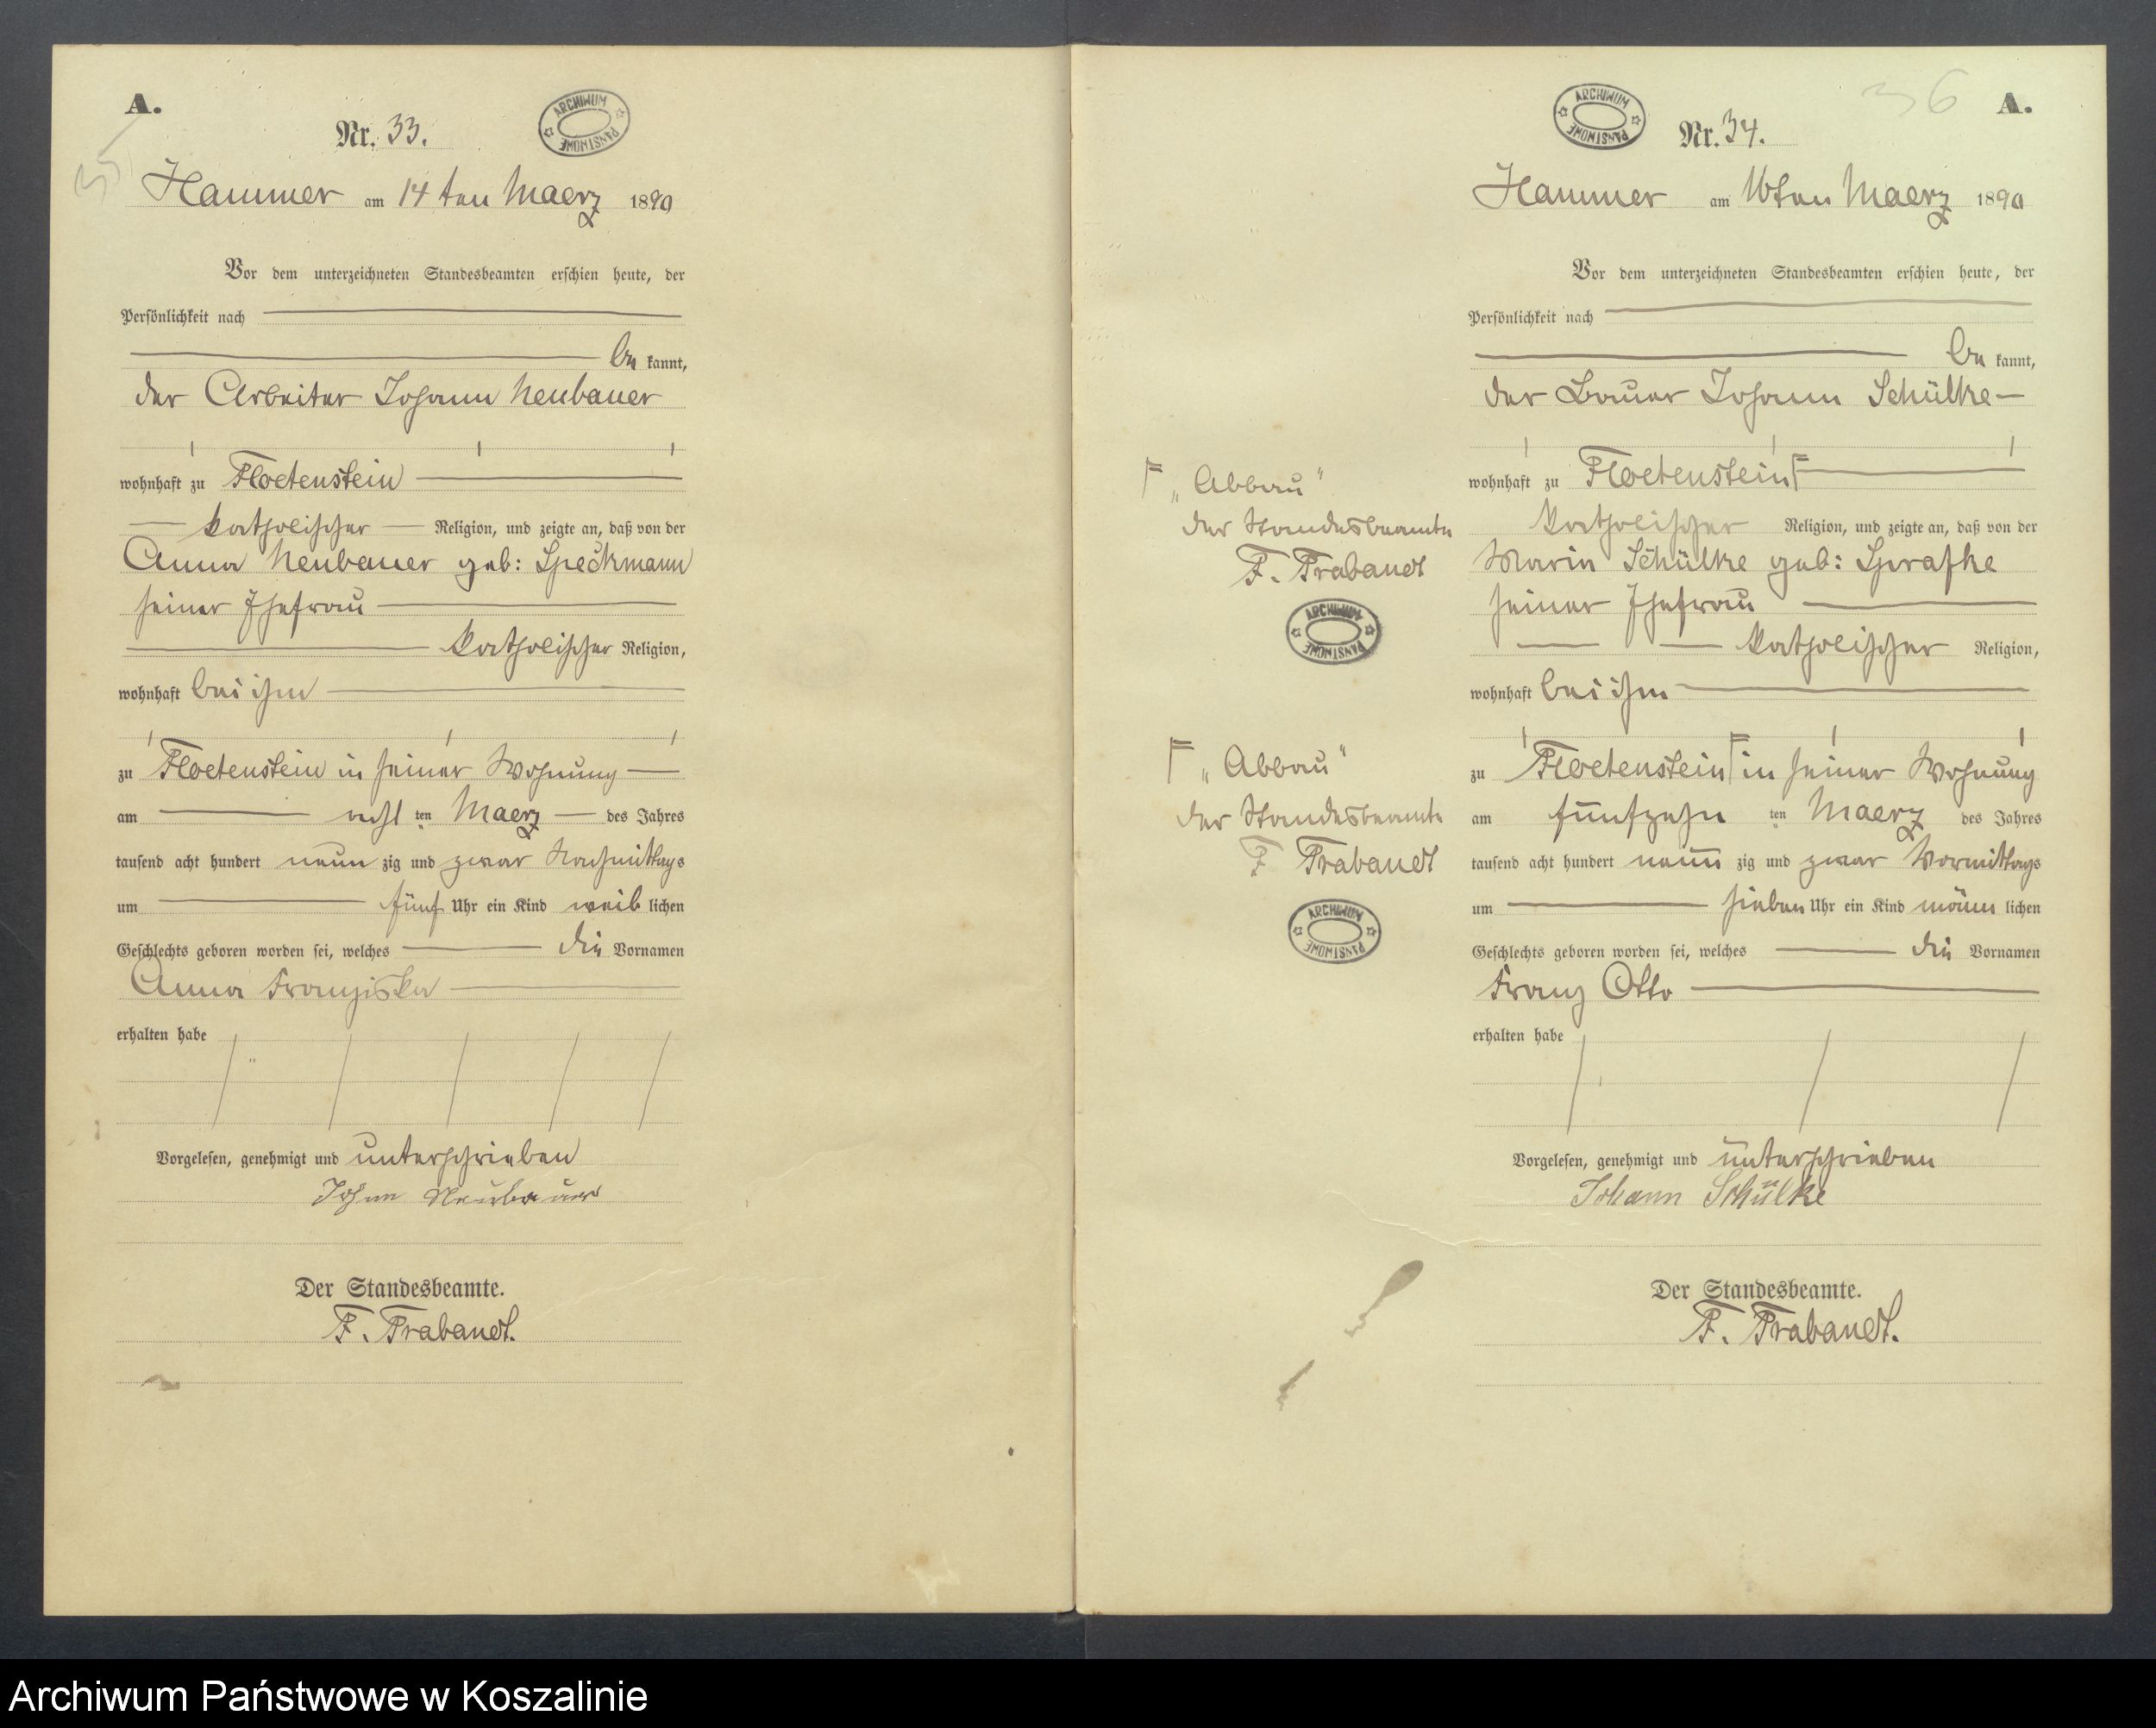 A.
35
Nr. 33.
ARCHIWUM PAŃSTWOWE
Hammer am 14 ten Maerz 1890
Vor dem unterzeichneten Standesbeamten erschien heute, der
Persönlichkeit nach
be kannt,
der Arbeiter Johann Neubauer
wohnhaft zu Floetenstein
katholischer Religion, und zeigte an, daß von der
Anna Neubauer geb: Speckmann
seiner Ehefrau
katholischer Religion,
wohnhaft bei ihm
zu Floetenstein in seiner Wohnung
am acht ten Maerz des Jahres
tausend acht hundert neun zig und zwar Nachmittags
um fünf Uhr ein Kind weib lichen
Geschlechts geboren worden sei, welches die Vornamen
Anna Franziska
erhalten habe
Vorgelesen, genehmigt und unterschrieben
Johann Neubauer
Der Standesbeamte.
F. Trabandt.
36
A.
ARCHIWUM PAŃSTWOWE
Nr. 34.
Hammer am 16ten Maerz 1890
Vor dem unterzeichneten Standesbeamten erschien heute, der
Persönlichkeit nach
be kannt,
der Bauer Johann Schülke
wohnhaft zu Floetenstein
katholischer Religion, und zeigte an, daß von der
Maria Schülke geb:
seiner Ehefrau
katholischer Religion,
wohnhaft bei ihm
zu Floetenstein in seiner Wohnung
am fünfzehn ten Maerz des Jahres
tausend acht hundert neun zig und zwar Vormittags
um sieben Uhr ein Kind männ lichen
Geschlechts geboren worden sei, welches die Vornamen
Franz Otto
erhalten habe
Vorgelesen, genehmigt und unterschrieben
Johann Schülke
Der Standesbeamte.
F. Trabandt.
„Abbau"
der Standesbeamte
F. Trabandt
ARCHIWUM PAŃSTWOWE
„Abbau"
der Standesbeamte
F. Trabandt
ARCHIWUM PAŃSTWOWE
Archiwum Państwowe w Koszalinie